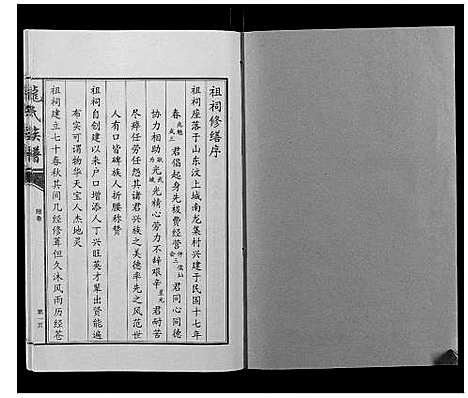 祖祠修缮序
祖祠座落于山东汶上城南龙集村兴建于民国十七年
春 君倡起身先拔费经营 君同心同德
协力相助 光武光精心劳力不辞艰辛 君耐苦
尽瘁任劳任怨其诸君兴族之美德率先之风范世
人有口皆碑族人折腰称赞
祖祠自创建以来户口增添人丁兴旺英才辈出贤能遍
布实可谓物华天宝人杰地灵
祖祠建立七十春秋其间几经修葺但久沐风雨历经苍
龙氏族谱
第一页